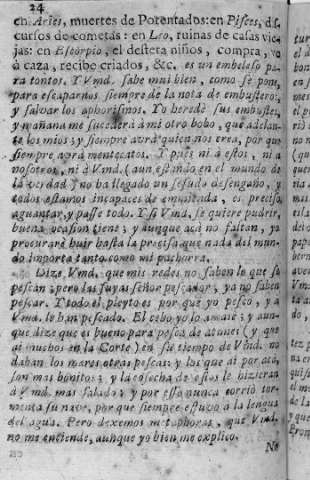 24
en Aries, muertes de Potentados: en Pisces, dis-
cursos de cometas: en Leo, ruinas de casas vie-
jas: en Escorpio, el desteta niños, compra, va
à caza, recibe criados, &c. es un embeleso pa-
ra tontos. Y Vmd. sabe mui bien, como se pone,
para escaparnos siempre de la nota de embusteros,
y salvar los aphorismos. Yo heredè sus embustes,
y mañana me succederà à mi otro bobo, que adelan-
te los mios; y siempre avrà quien nos crea, por que
siempre avrà mentecatos. Y pues ni à estos, ni a
nosotros, ni à Vmd. (aun estando en el mundo de
la verdad) no ha llegado un sesudo desengaño, y
todos estamos incapaces de enmienda, es preciso
aguantar, y passe todo. Y si Vmd. se quiere pudrir,
buena ocasion tiene; y aunque acà no faltan, yo
procurarè huir hasta la precisa que nada del mun-
do importa tanto como mi pachorra.
Dize Vmd. que mis redes no saben lo que se
pescan; pero las suyas señor pescador, ya no saben
pescar. Y todo el pleyto es por que yo pesco, y a
Vmd. le han pescado. El cebo yo lo amasè; y aun-
que dize que es bueno para pesca de atunes (y que
ai muchos en la Corte) en su tiempo de Vmd. no
daban los mares otras pescas; y los que ai por acà,
son mas bonitos; y la cosecha de estos le hizieran
à Vmd. mas salado; y por essa nunca corriò tor-
menta su nave, por que siempre estuvo a la lengua
del agua. Pero dexemos metaphoras, que Vmd.
no me entiende, aunque yo bien me explico.
No